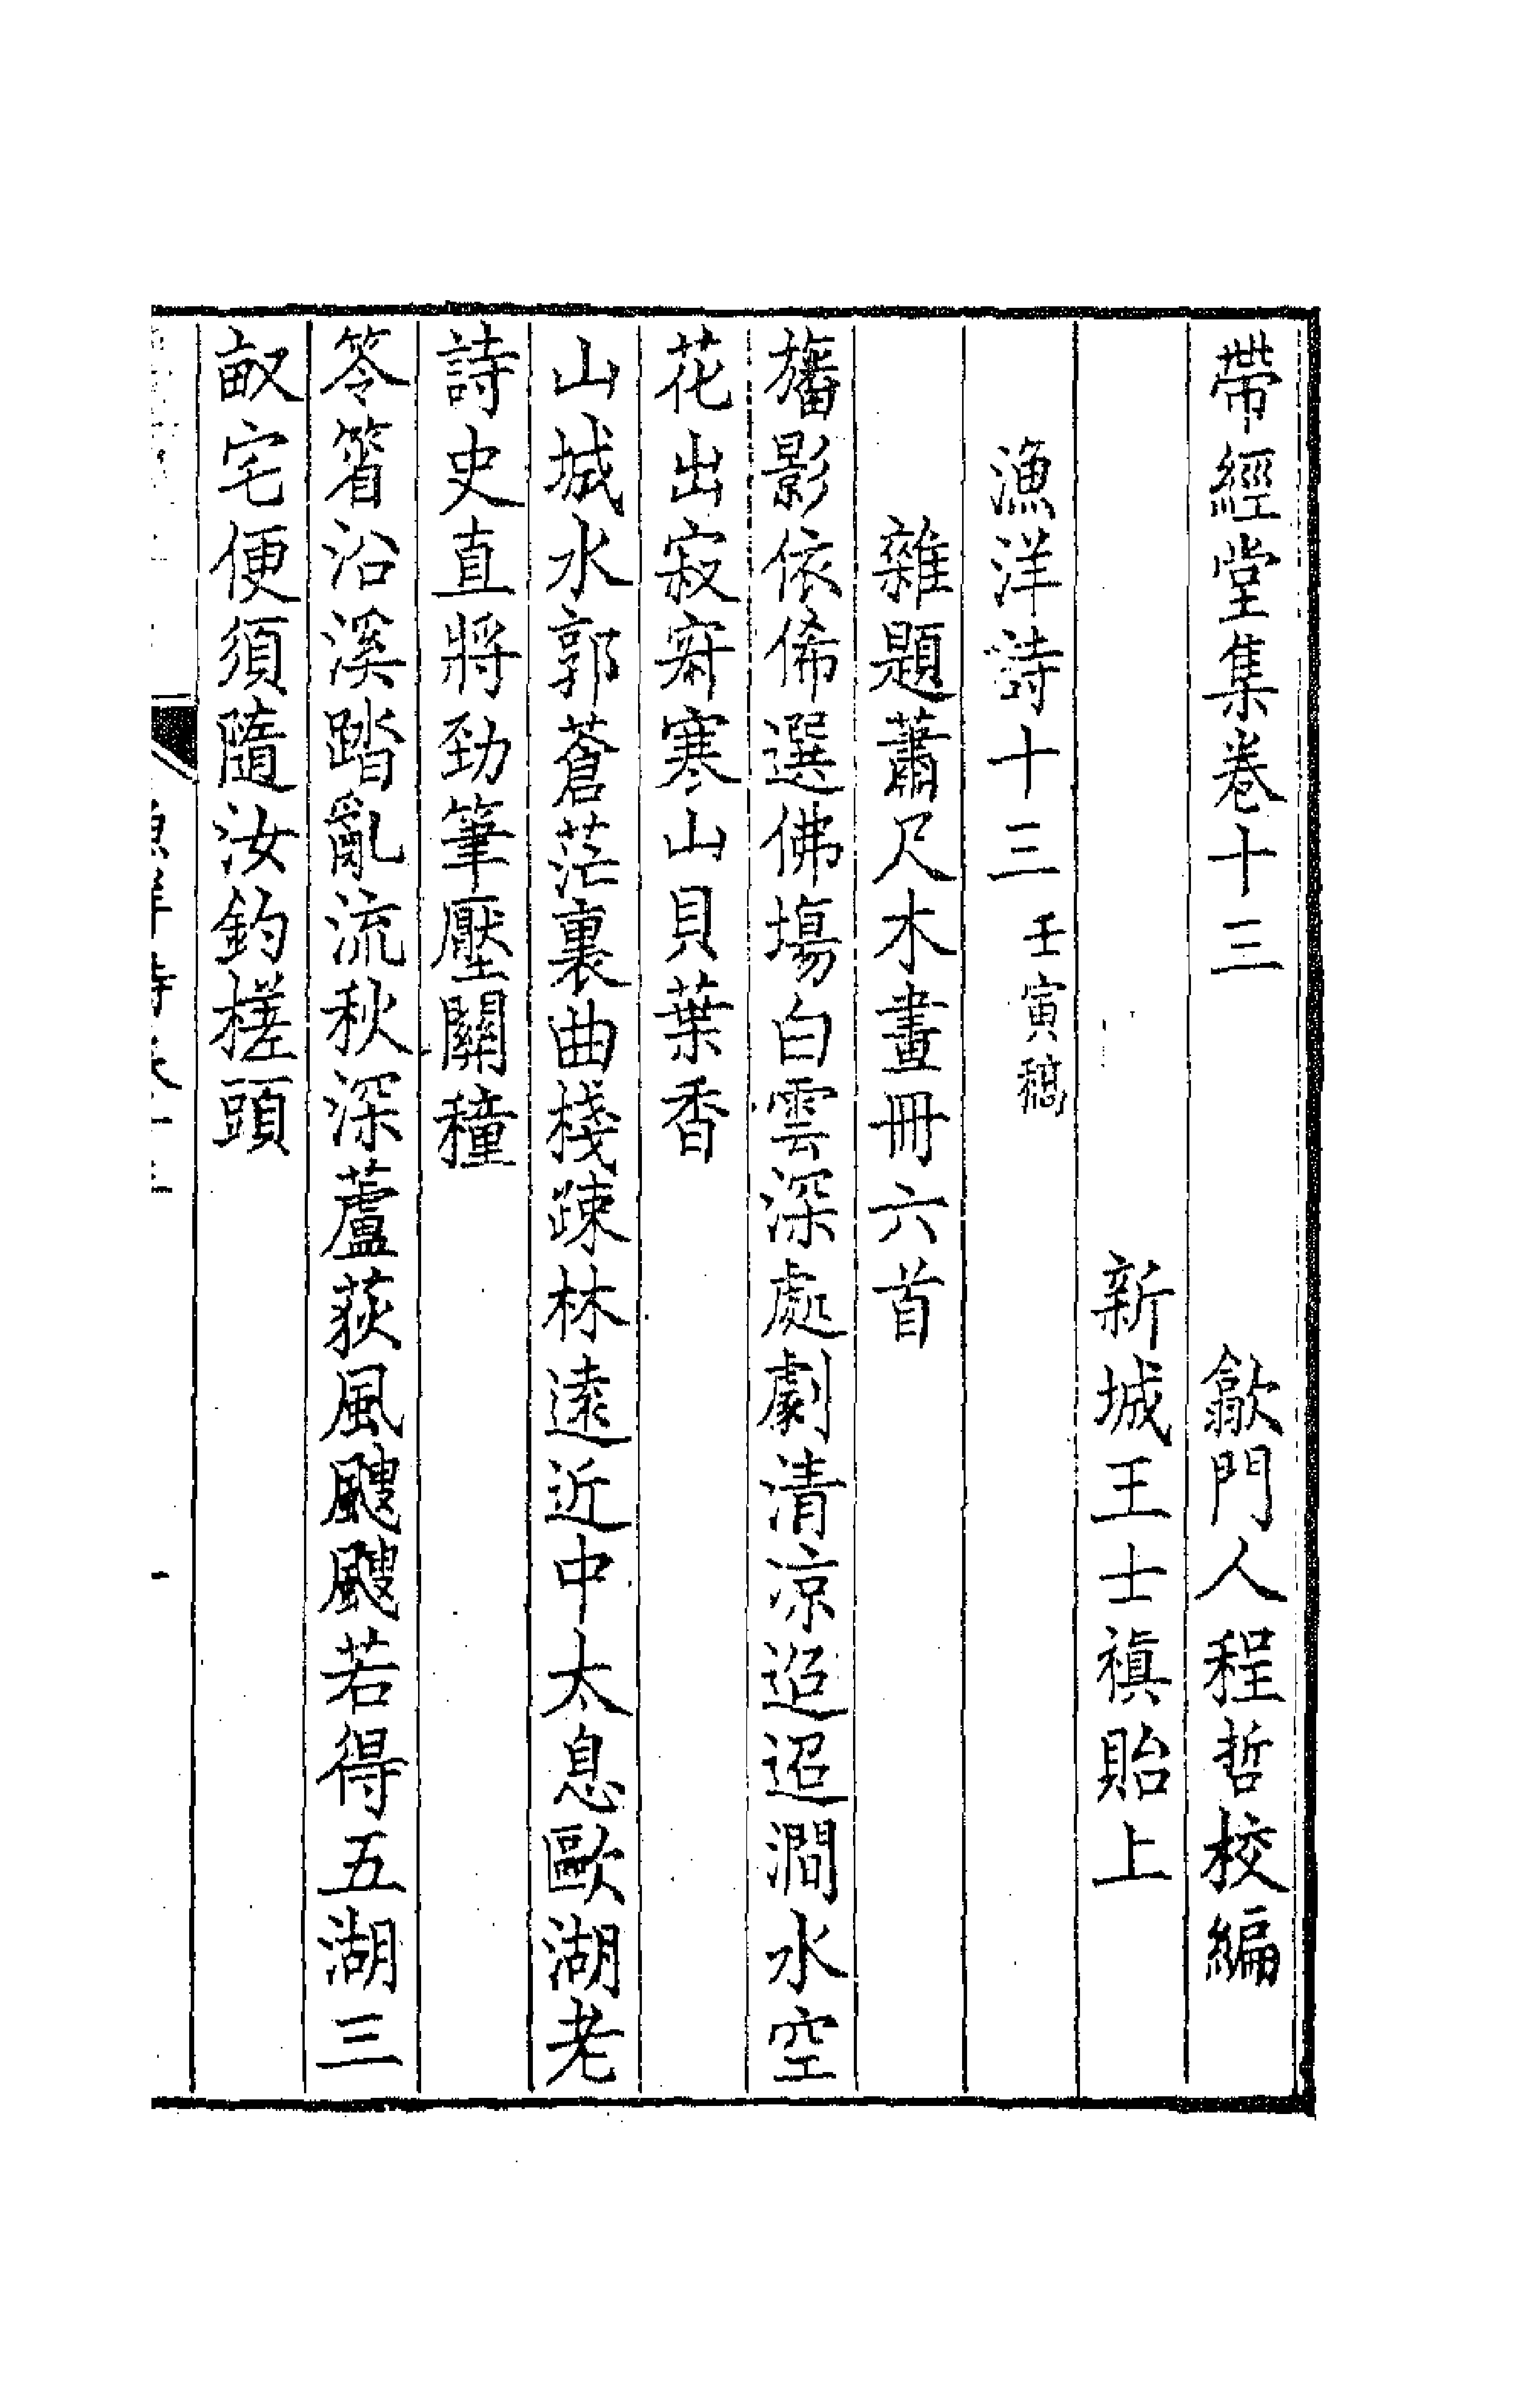 帶經堂集卷十三　歙門人程哲校編
新城王士禛貽上
漁洋詩十三 壬寅稿
雜題蕭尺木畫冊六首
旛影依俙選佛塲白雲深處劇清涼迢迢澗水空
花出寂寞寒山貝葉香
山城水郭蒼茫裏曲棧踈林遠近中太息歐湖老
詩史直將勁筆壓關穜
笭箵沿溪踏亂流秋深蘆荻風颼颼若得五湖三
畝宅便須隨汝釣槎頭